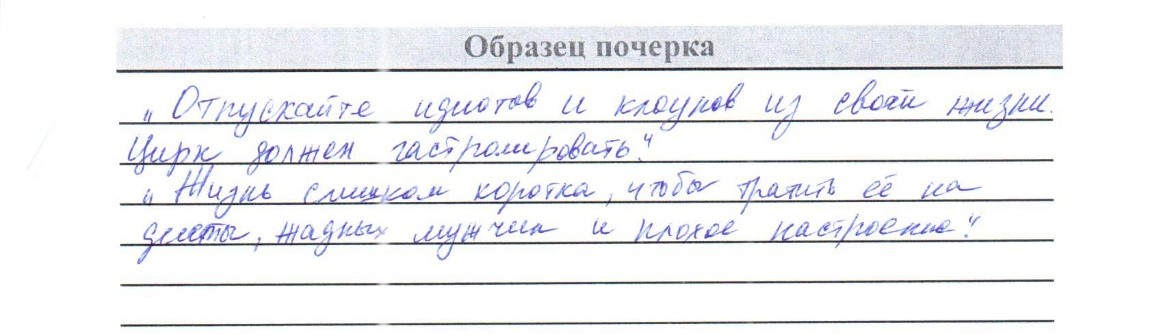 Образец почерка
„Отпускайте идиотов и клоунов из своей жизни.
Цирк должен гастролировать."
„Жизнь слишком коротка, чтобы тратить её на
диеты, жадных мужчин и плохое настроение."